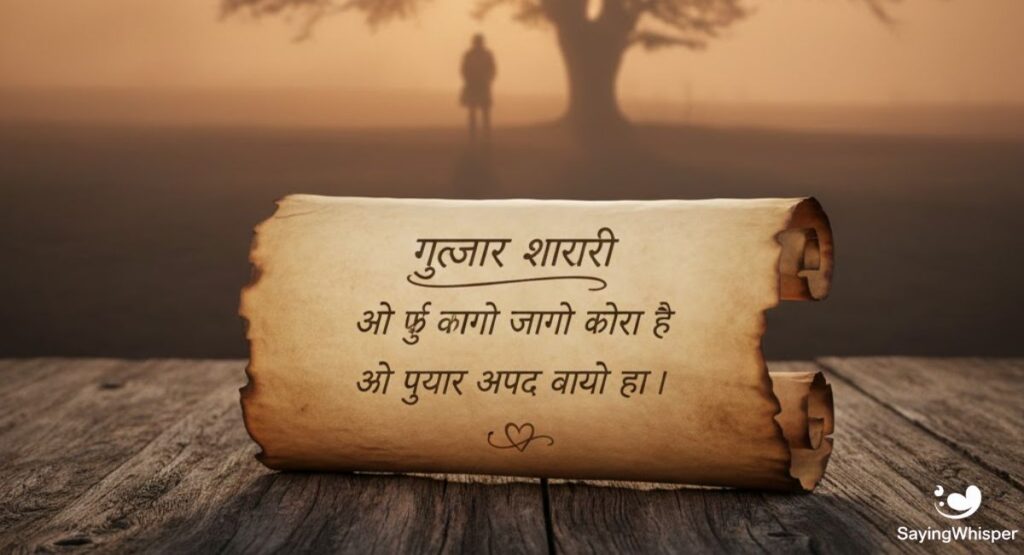 गुत्जार शारारी
ओ र्फु कागो जागो कोरा है
ओ पुयार अपद वायो हा।
SayingWhisper